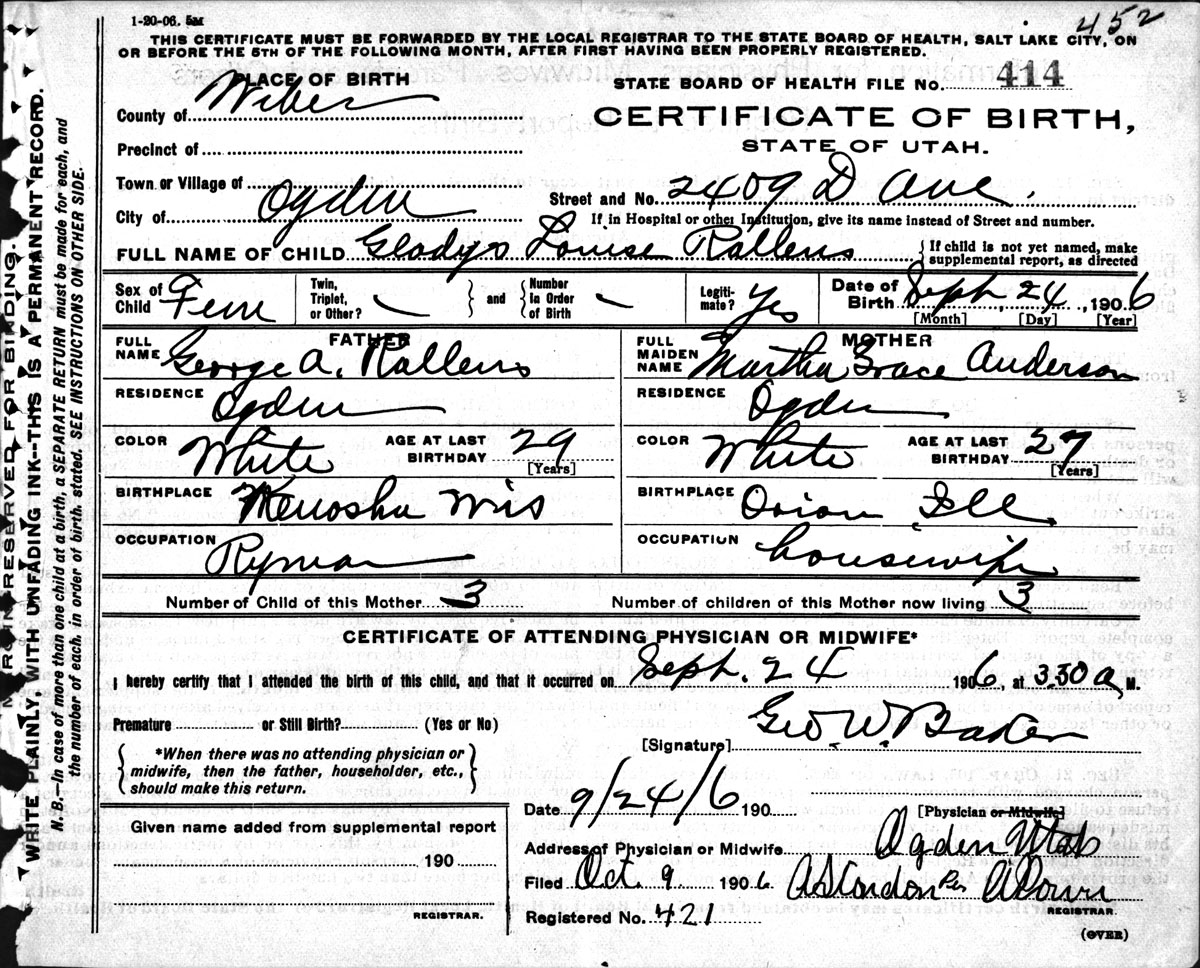 1-20-06. 5M
452
THIS CERTIFICATE MUST BE FORWARDED BY THE LOCAL REGISTRAR TO THE STATE BOARD OF HEALTH, SALT LAKE CITY, ON
OR BEFORE THE 5TH OF THE FOLLOWING MONTH, AFTER FIRST HAVING BEEN PROPERLY REGISTERED.
PLACE OF BIRTH
County of Weber
Precinct of
Town or Village of
City of Ogden
STATE BOARD OF HEALTH FILE No. 414
CERTIFICATE OF BIRTH,
STATE OF UTAH.
Street and No. 2409 D Ave.
If in Hospital or other Institution, give its name instead of Street and number.
FULL NAME OF CHILD Gladys Louise Rallens
If child is not yet named, make
supplemental report, as directed
Sex of Child Fem
Twin, Triplet, or Other?
and
Number In Order of Birth
Legiti- mate? Yes
Date of Birth Sept, 24, 1906
[Month] [Day] [Year]
FATHER
FULL NAME George A. Rallens
RESIDENCE Ogden
COLOR White AGE AT LAST BIRTHDAY 29
[Years]
BIRTHPLACE Kenosha Wis
OCCUPATION Ryman
MOTHER
FULL MAIDEN NAME Martha Grace Anderson
RESIDENCE Ogden
COLOR White AGE AT LAST BIRTHDAY 27
[Years]
BIRTHPLACE Orion Ill
OCCUPATION housewife
Number of Child of this Mother 3
Number of children of this Mother now living 3
CERTIFICATE OF ATTENDING PHYSICIAN OR MIDWIFE*
I hereby certify that I attended the birth of this child, and that it occurred on Sept. 24 1906, at 3.30 a, M.
Premature or Still Birth? (Yes or No)
[Signature] Geo. W. Baker
*When there was no attending physician or
midwife, then the father, householder, etc.,
should make this return.
Date 9/24/6 190
[Physician or Midwife]
Address of Physician or Midwife Ogden Utah
Filed Oct. 9 1906
REGISTRAR.
Registered No. 421
(OVER)
Given name added from supplemental report
190
REGISTRAR.
MARGIN RESERVED FOR BINDING.
WRITE PLAINLY, WITH UNFADING INK--THIS IS A PERMANENT RECORD.
N. B.--In case of more than one child at a birth, a SEPARATE RETURN must be made for each, and
the number of each, in order of birth, stated. SEE INSTRUCTIONS ON OTHER SIDE.